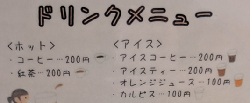 ドリンクメニュー
<ホット>
・コーヒー…200円
・紅茶…200円
<アイス>
・アイスコーヒー…200円
・アイスティー…200円
・オレンジジュース…100円
・カルピス…100円